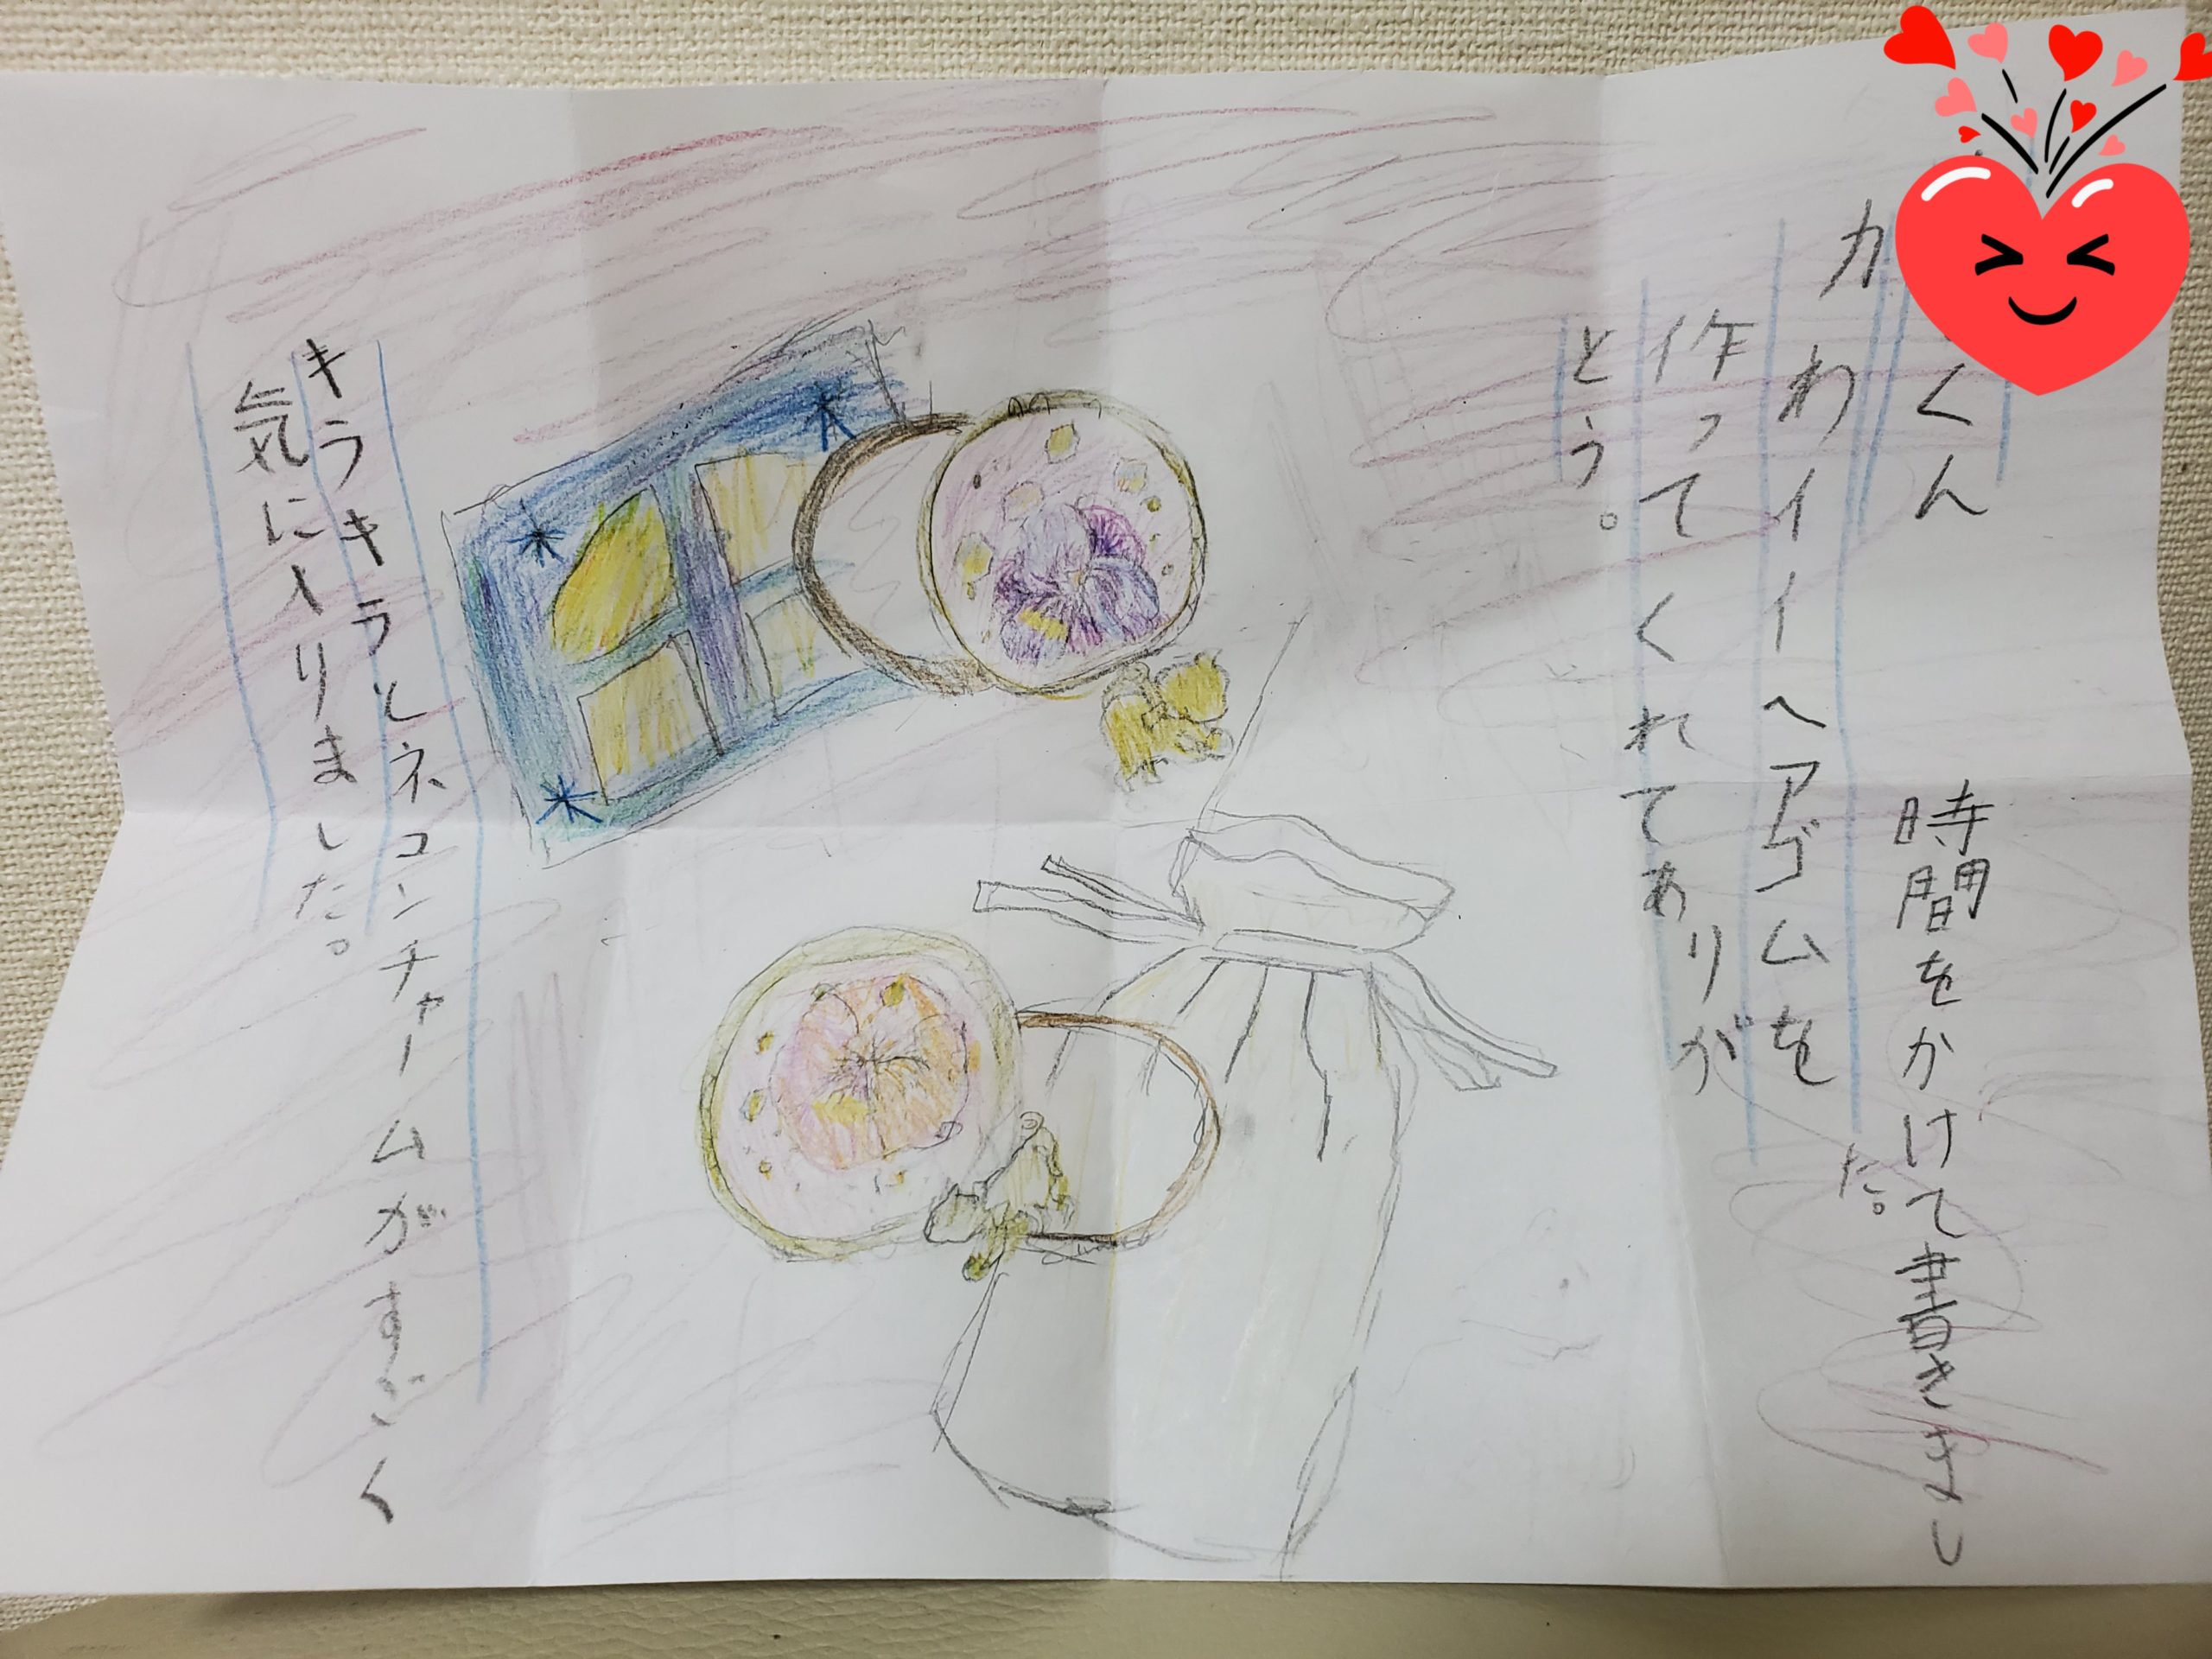 くん
時間をかけて書きまし
た。
カわイイヘアゴムを
作ってくれてありが
とう。
キラキラとネコンチャームがすごく
気に入りました。